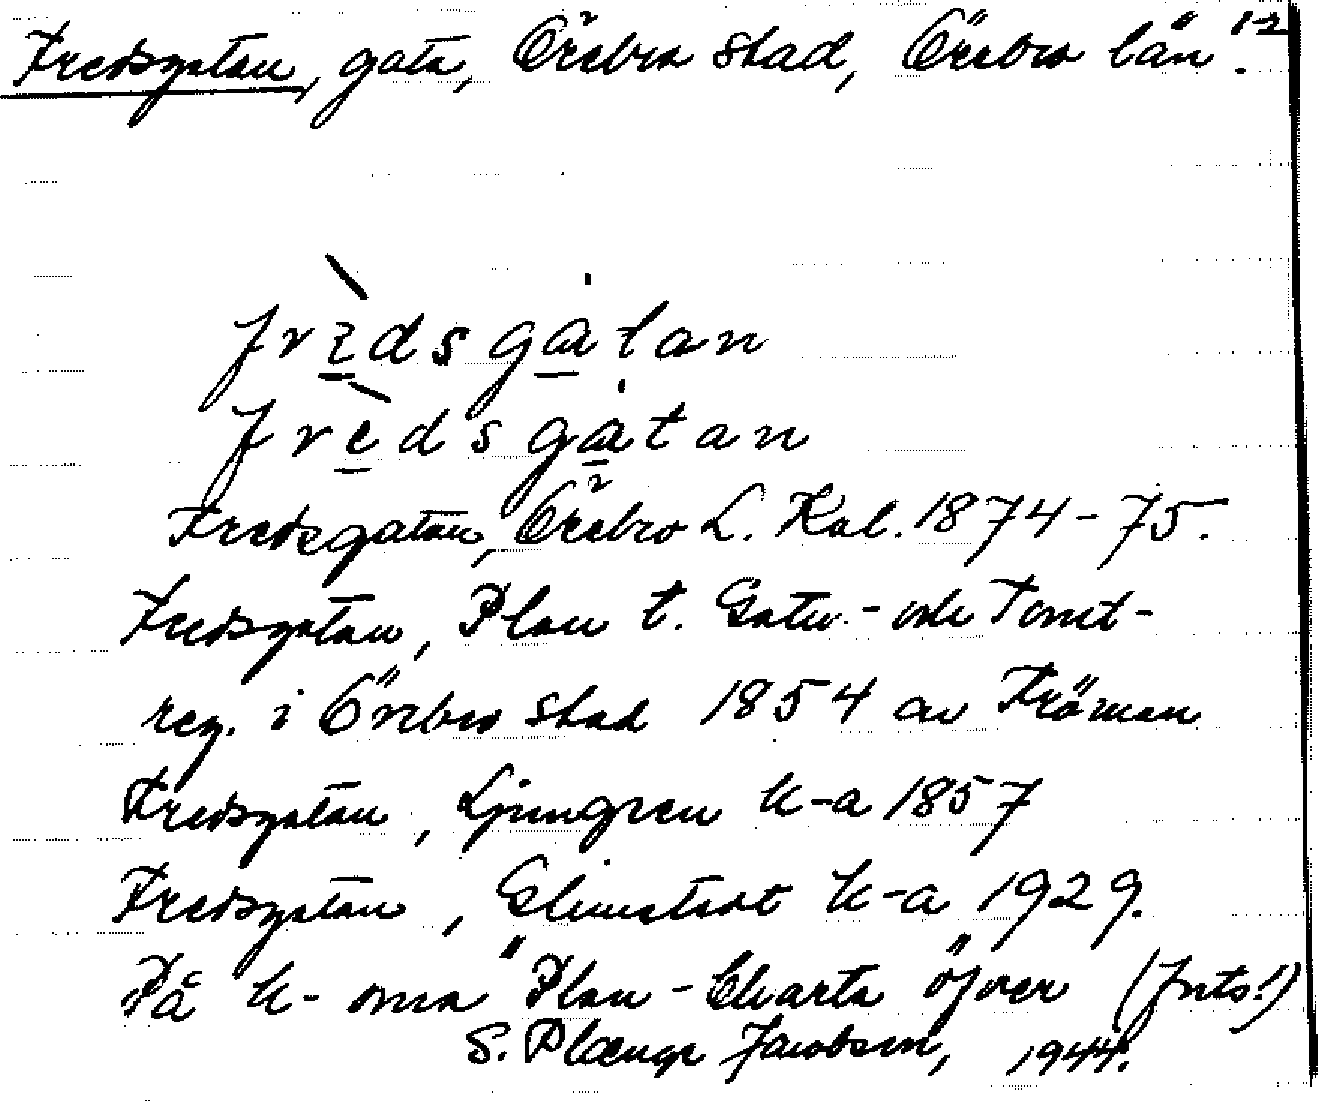 Fredsgatan, gata, Örebro stad, Örebro län. 1-2
frèdsgatan
frèdsgatan
Fredsgatan, Örebro L. Kal. 1874-75.
Fredsgatan, Plan t. Gatu- och Tomt-
reg. i Örebro stad 1854 av Fröman
Fredsgatan, Ljunggren k-a 1857
Fredsgatan, k-a 1929.
På k-orna "Plan-Charta öfver (forts.!)
S. Plænge Jacobson, 1944.